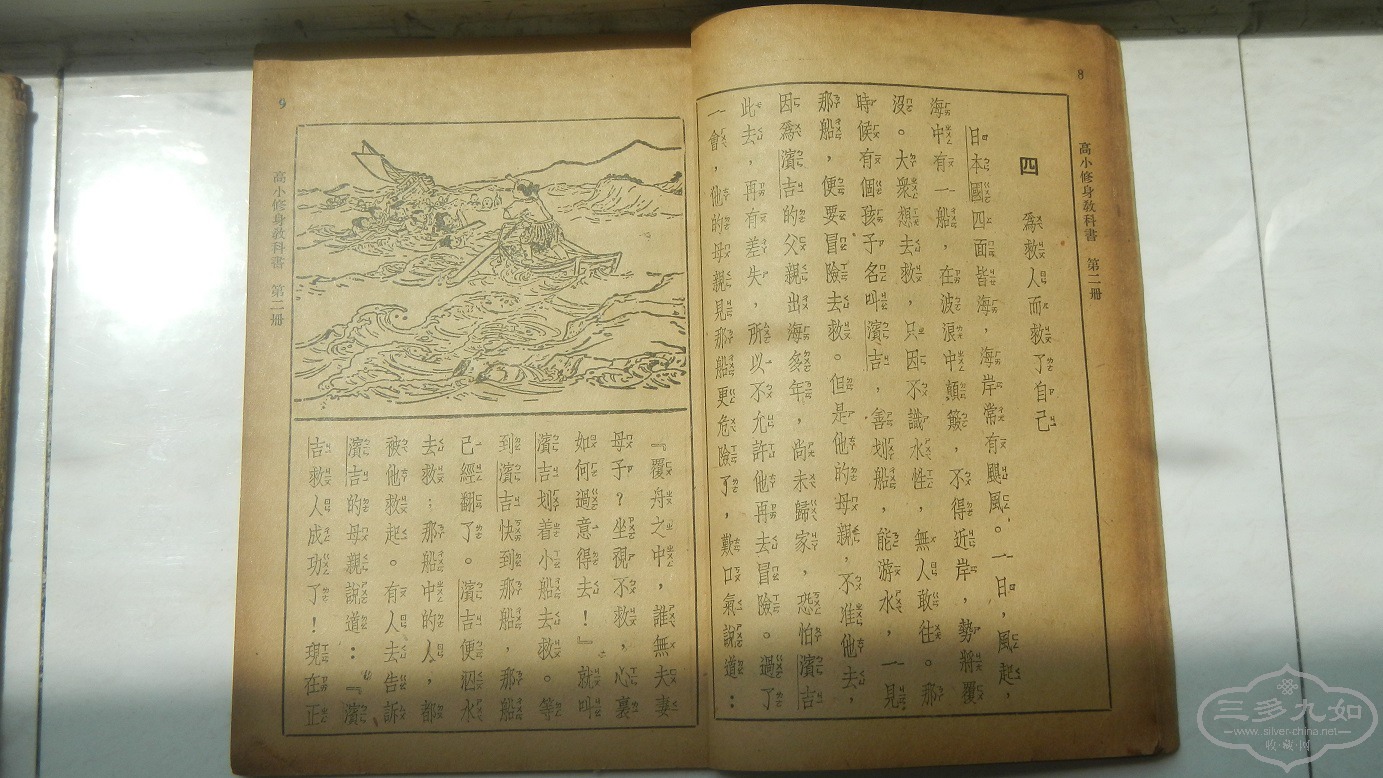 8
高小修身教科書 第二冊
四 爲救人而救了自己
日本國四面皆海，海岸常有颶風。一日，風起，
海中有一船，在波浪中顛簸，不得近岸，勢將覆
沒。大衆想去救，只因不識水性，無人敢往。那
時候有個孩子名叫濱吉，善划船，能游水，一見
那船，便要冒險去救。但是他的母親，不准他去，
因爲濱吉的父親出海多年，尚未歸家，恐怕濱吉
此去，再有差失，所以不允許他再去冒險。過了
一會，他的母親見那船更危險了，歎口氣說道：
9
高小修身教科書 第二冊
『覆舟之中，誰無夫妻
母子？坐視不救，心裏
如何過意得去！』就叫
濱吉划着小船去救。等
到濱吉快到那船，那船
已經翻了。濱吉便泅水
去救；那船中的人，都
被他救起。有人去告訴
濱吉的母親說道：『濱
吉救人成功了！現在正
三多九如
www.silver-china.net
收藏网